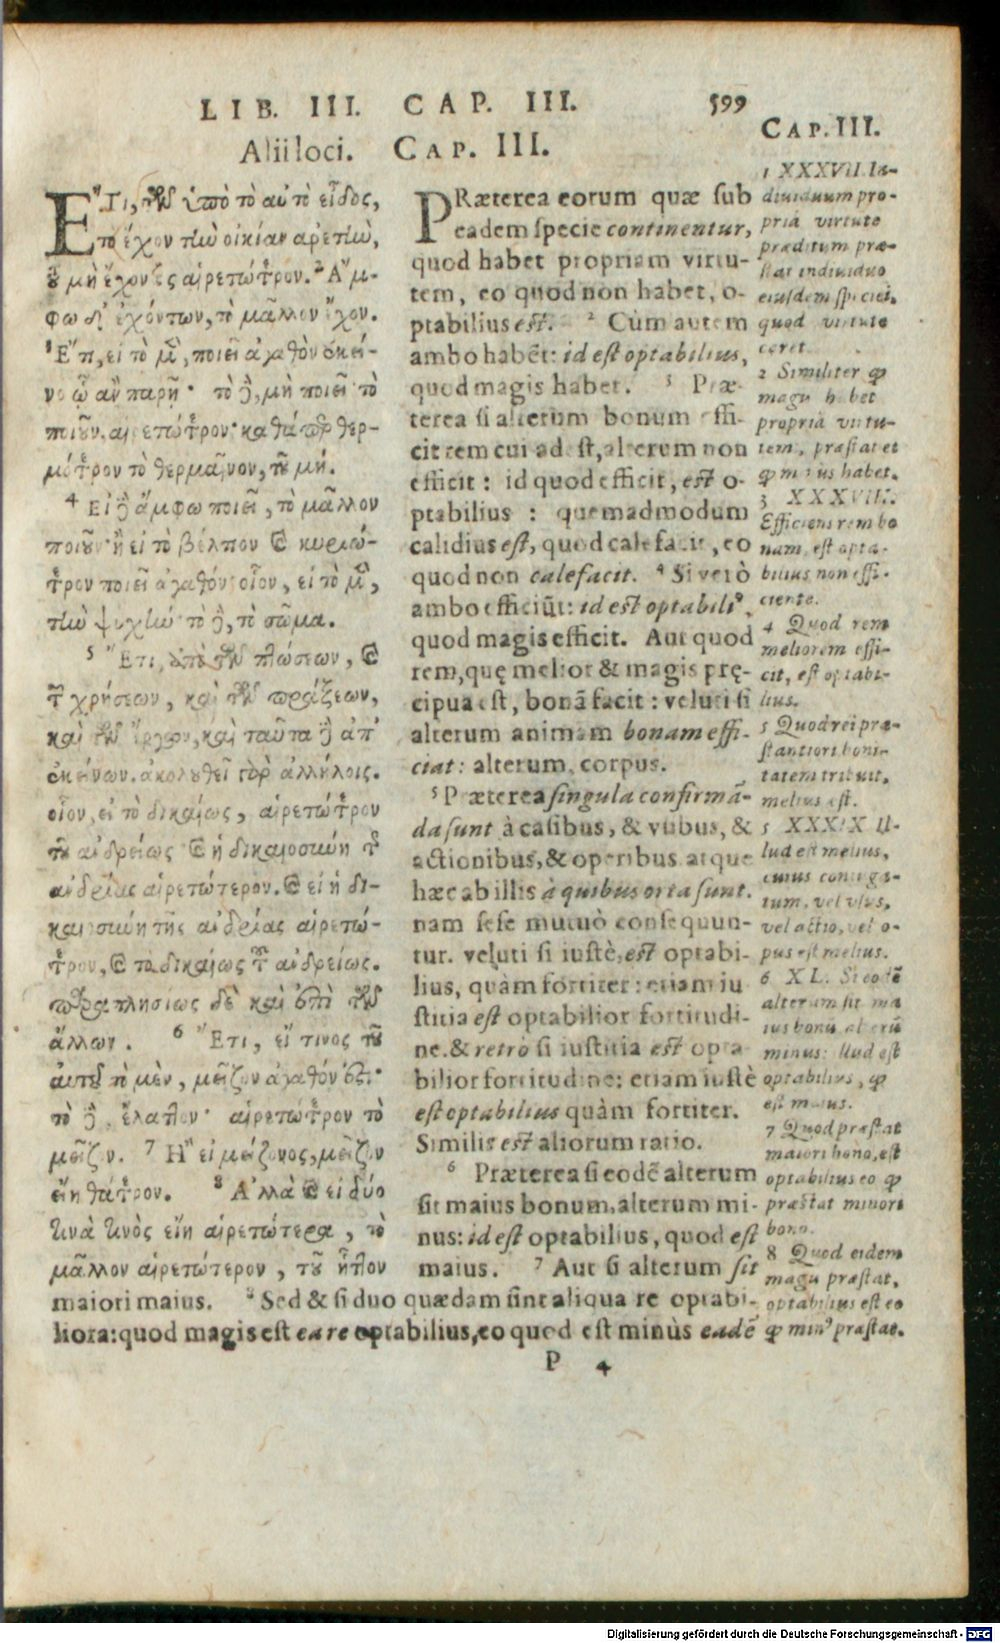 LIB. III. CAP. III. 599
Alii loci. CAP. III.
ἜΤι, τῶν ὑπὸ τὸ αὐτὸ εἶδος,
τὸ ἔχον τὴν οἰκείαν ἀρετὴν,
τοῦ μὴ ἔχοντος αἱρετώτερον. 2 Ἄμ-
φω δὲ ἐχόντων, τὸ μᾶλλον ἔχον.
3 Ἔτι, εἰ τὸ μὲν, ποιεῖ ἀγαθὸν ἐκεῖ-
νο ᾧ ἂν παρῇ· τὸ δὲ, μὴ ποιεῖ· τὸ
ποιοῦν, αἱρετώτερον· καθάπερ θερ-
μότερον τὸ θερμαῖνον, τοῦ μή.
4 Εἰ δὲ ἄμφω ποιεῖ, τὸ μᾶλλον
ποιοῦν· ἢ εἰ τὸ βέλτιον καὶ κυριώ-
τερον ποιεῖ ἀγαθόν· οἷον, εἰ τὸ μὲν,
τὴν ψυχὴν· τὸ δὲ, τὸ σῶμα.
5 Ἔτι, ἀπὸ τῶν πτώσεων, καὶ
τῶν χρήσεων, καὶ τῶν πράξεων,
καὶ τῶν ἔργων, καὶ ταῦτα δὲ ἀπ'
ἐκείνων. ἀκολουθεῖ γὰρ ἀλλήλοις.
οἷον, εἰ τὸ δικαίως, αἱρετώτερον
τοῦ ἀνδρείως· καὶ ἡ δικαιοσύνη τῆς
ἀνδρίας αἱρετώτερον. καὶ εἰ ἡ δι-
καιοσύνη τῆς ἀνδρίας αἱρετώ-
τερον, καὶ τὸ δικαίως τοῦ ἀνδρείως.
παραπλησίως δὲ καὶ ἐπὶ τῶν
ἄλλων. 6 Ἔτι, εἴ τινος τοῦ
αὐτοῦ τὸ μὲν, μεῖζον ἀγαθόν ἐστι·
τὸ δὲ, ἔλαττον· αἱρετώτερον τὸ
μεῖζον. 7 Ἢ εἰ μείζονος, μεῖζον
εἴη θάτερον. 8 Ἀλλὰ καὶ εἰ δύο
τινὰ τινὸς εἴη αἱρετώτερα, τὸ
μᾶλλον αἱρετώτερον, τοῦ ἧττον
PRæterea eorum quæ sub
eadem specie continentur,
quod habet propriam virtu-
tem, eo quod non habet, o-
ptabilius est. 2 Cùm autem
ambo habēt: id est optabilius,
quod magis habet. 3 Præ-
terea si alterum bonum effi-
cit rem cui adest, alterum non
efficit: id quod efficit, est o-
ptabilius: quemadmodum
calidius est, quod calefacit, eo
quod non calefacit. 4 Si verò
ambo efficiūt: id est optabili⁹,
quod magis efficit. Aut quod
rem, quę melior & magis prę-
cipua est, bonā facit: veluti si
alterum animam bonam effi-
ciat: alterum, corpus.
5 Præterea singula confirmā-
da sunt à casibus, & vsibus, &
actionibus, & operibus atque
hæc ab illis à quibus orta sunt.
nam sese mutuò consequun-
tur. veluti si iustè, est optabi-
lius, quàm fortiter: etiam iu
stitia est optabilior fortitudi-
ne. & retrò si iustitia est opta
bilior fortitudine: etiam iustè
est optabilius quàm fortiter.
Similis est aliorum ratio.
6 Præterea si eodē alterum
sit maius bonum, alterum mi-
nus: id est optabilius, quod est
maius. 7 Aut si alterum sit
maiori maius. 8 Sed & si duo quædam sint aliqua re optabi-
liora: quod magis est ea re optabilius, eo quod est minùs eadē
P 4
CAP. III.
1 XXXVII. In-
diuiduum pro-
pria virtute
præditum præ-
stat indiuiduo
eiusdem speciei,
quod virtute
caret.
2 Similiter qđ
magis habet
propriā virtu-
tem, præstat et
qđ minus habet.
3 XXXVIII.
Efficiens rem bo
nam, est opta-
bilius non effi-
ciente.
4 Quod rem
meliorem effi-
cit, est optabi-
lius.
5 Quod rei præ-
stantiori boni-
tatem tribuit,
melius est.
5 XXXIX Il-
lud est melius,
cuius coniuga-
tum, vel vsus,
vel actio, vel o-
pus est melius.
6 XL. Si eodē
alterum sit ma
ius bonū, alterū
minus: illud est
optabilius, qđ
est maius.
7 Quod præstat
maiori bono, est
optabilius eo qđ
præstat minori
bono.
8 Quod eidem
magis præstat,
optabilius est eo
qđ min⁹ præstat.
Digitalisierung gefördert durch die Deutsche Forschungsgemeinschaft - DFG